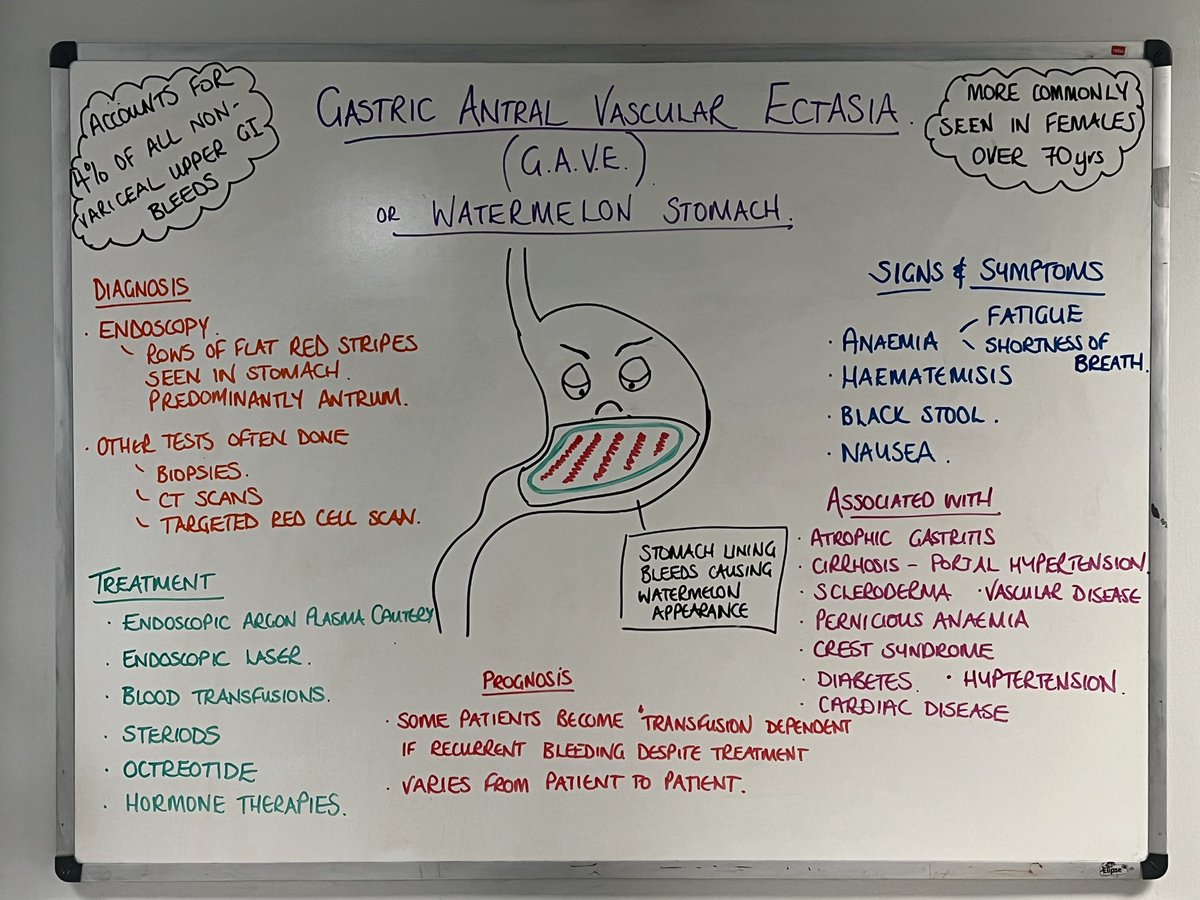 ACCOUNTS FOR
4% OF ALL NON-
VARICEAL UPPER GI
BLEEDS
GASTRIC ANTRAL VASCULAR ECTASIA.
(G.A.V.E.)
OR WATERMELON STOMACH.
MORE COMMONLY
SEEN IN FEMALES
OVER 70yrs
DIAGNOSIS
· ENDOSCOPY.
ROWS OF FLAT RED STRIPES
SEEN IN STOMACH.
PREDOMINANTLY ANTRUM.
· OTHER TESTS OFTEN DONE
BIOPSIES.
CT SCANS
TARGETED RED CELL SCAN.
TREATMENT
· ENDOSCOPIC ARGON PLASMA CAUTERY
· ENDOSCOPIC LASER.
· BLOOD TRANSFUSIONS.
· STERIODS
· OCTREOTIDE
· HORMONE THERAPIES.
STOMACH LINING
BLEEDS CAUSING
WATERMELON
APPEARANCE
PROGNOSIS
· SOME PATIENTS BECOME 'TRANSFUSION DEPENDENT
IF RECURRENT BLEEDING DESPITE TREATMENT
· VARIES FROM PATIENT TO PATIENT.
SIGNS & SYMPTOMS
· ANAEMIA
FATIGUE
SHORTNESS OF
BREATH.
· HAEMATEMISIS
· BLACK STOOL.
· NAUSEA.
ASSOCIATED WITH
· ATROPHIC GASTRITIS
· CIRRHOSIS - PORTAL HYPERTENSION.
· SCLERODERMA · VASCULAR DISEASE
· PERNICIOUS ANAEMIA
· CREST SYNDROME
· DIABETES. · HYPTERTENSION.
· CARDIAC DISEASE
Elipse